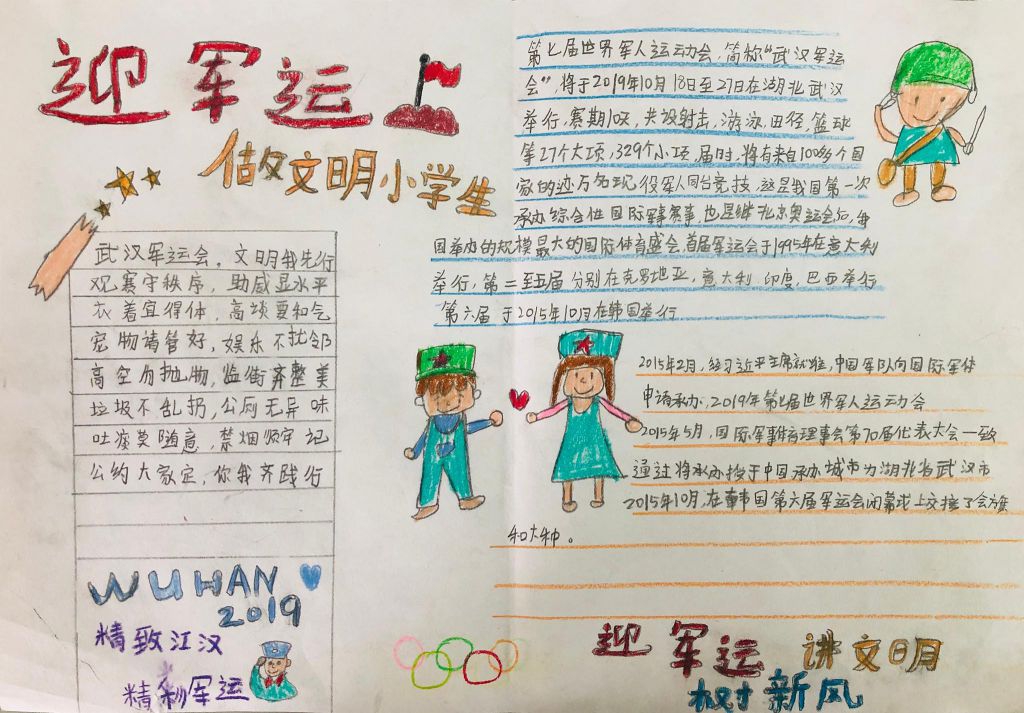 迎军运
做文明小学生
武汉军运会，文明我先行
观赛守秩序，助威显水平
衣着宜得体，高谈要和气
宠物请管好，娱乐不扰邻
高空勿抛物，临街齐整美
垃圾不乱扔，公厕无异味
吐痰莫随意，禁烟须牢记
公约大家定，你我齐践行
WUHAN
2019
精致江汉
精彩军运
第七届世界军人运动会，简称“武汉军运
会”，将于2019年10月18日至27日在湖北武汉
举行，赛期10天，共设射击，游泳，田径，篮球
等27个大项，329个小项，届时，将有来自100多个国
家的近万名现役军人同台竞技，这是我国第一次
承办综合性国际军事赛事，也是继北京奥运会后，我
国举办的规模最大的国际体育盛会，首届军运会于1995年在意大利
举行，第二至五届分别在克罗地亚，意大利，印度，巴西举行
第六届于2015年10月在韩国举行
2015年2月，经习近平主席批准，中国军队向国际军体
申请承办，2019年第七届世界军人运动会
2015年5月，国际军事体育理事会第70届代表大会一致
通过将承办授于中国承办城市为湖北省武汉市
2015年10月，在韩国第六届军运会闭幕式上交接了会旗
和大种。
迎军运 讲文明
树新风